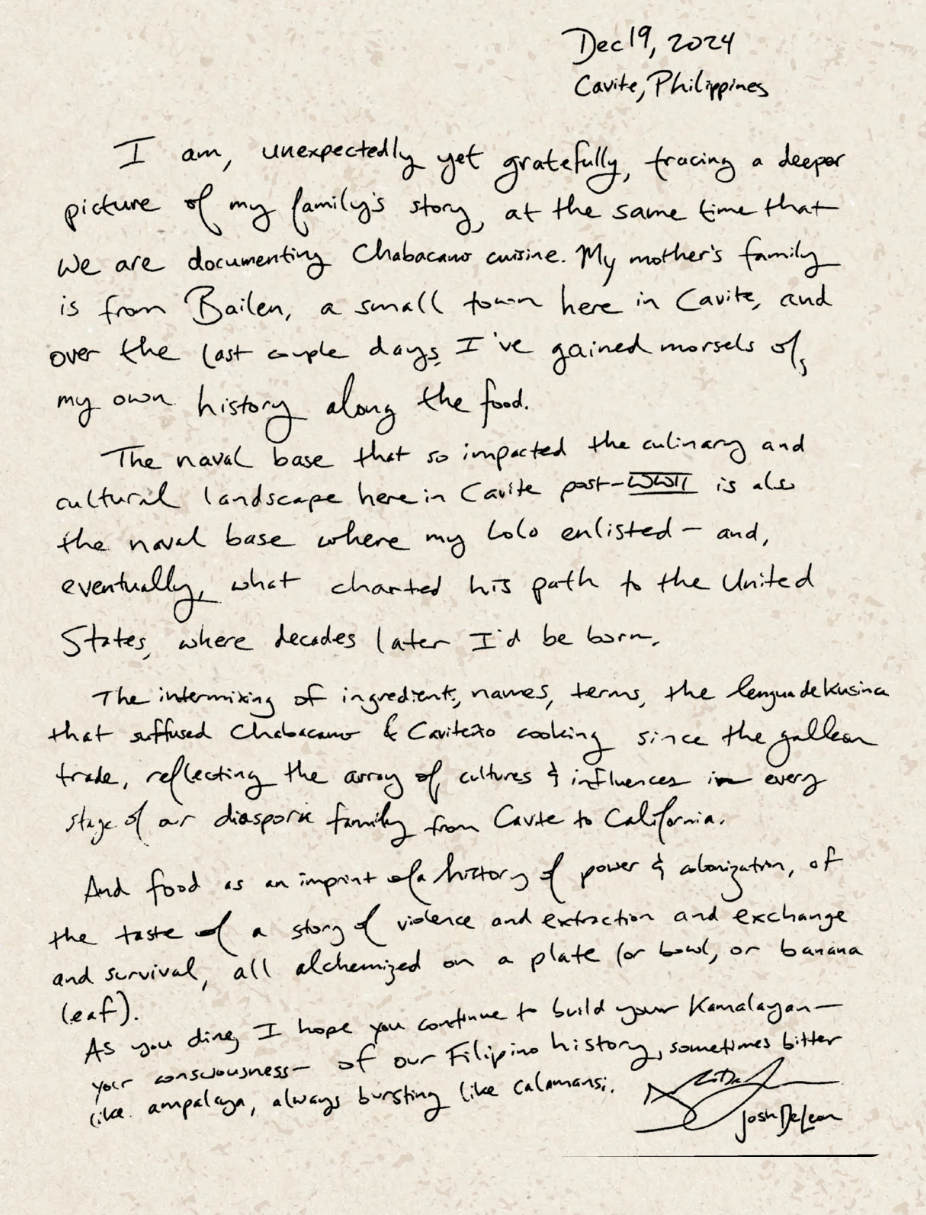 Dec 19, 2024
Cavite, Philippines
I am, unexpectedly yet gratefully, tracing a deeper
picture of my family's story, at the same time that
we are documenting Chabacano cuisine. My mother's family
is from Bailen, a small town here in Cavite, and
over the last couple days, I've gained morsels of
my own history along the food.
The naval base that so impacted the culinary and
cultural landscape here in Cavite post-WWII is also
the naval base where my Lolo enlisted - and,
eventually, what charted his path to the United
States, where decades later I'd be born.
The intermixing of ingredients, names, terms, the lengua de kusina
that suffused Chabacano & Caviteño cooking since the galleon
trade, reflecting the array of cultures & influences in every
stage of our diasporic family from Cavite to California.
And food as an imprint of a history of power & colonization, of
the taste of a story of violence and extraction and exchange
and survival, all alchemized on a plate (or bowl, or banana
leaf).
As you dine, I hope you continue to build your Kamalayan—
your consciousness— of our Filipino history, sometimes bitter
like ampalaya, always bursting like calamansi.
Josh DeLeon